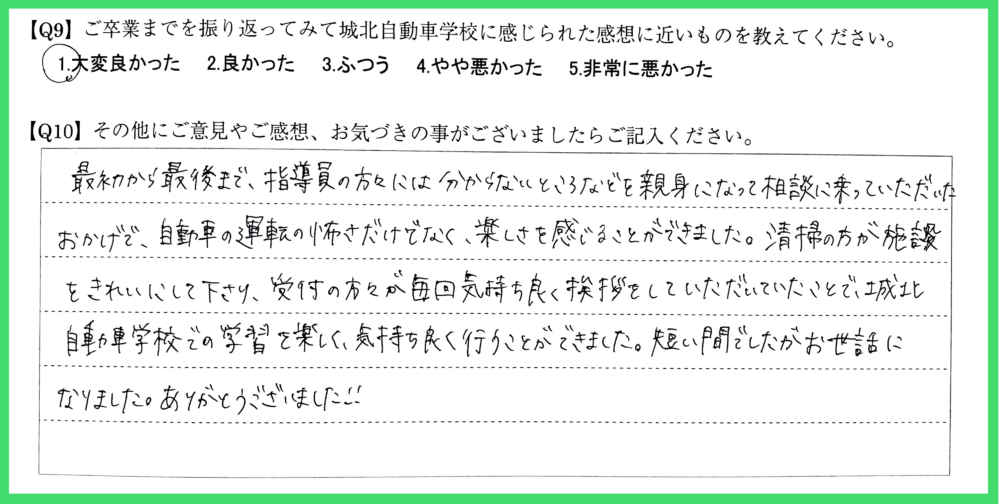 【Q9】ご卒業までを振り返ってみて城北自動車学校に感じられた感想に近いものを教えてください。
1.大変良かった 2.良かった 3.ふつう 4.やや悪かった 5.非常に悪かった
【Q10】その他にご意見やご感想、お気づきの事がございましたらご記入ください。
最初から最後まで、指導員の方々には分からないところなどを親身になって相談に乗っていただいた
おかげで、自動車の運転の怖さだけでなく、楽しさを感じることができました。清掃の方が施設
をきれいにして下さり、受付の方々が毎回気持ち良く挨拶をしていただいていたことで、城北
自動車学校での学習を楽しく、気持ち良く行うことができました。短い間でしたがお世話に
なりました。ありがとうございました!!